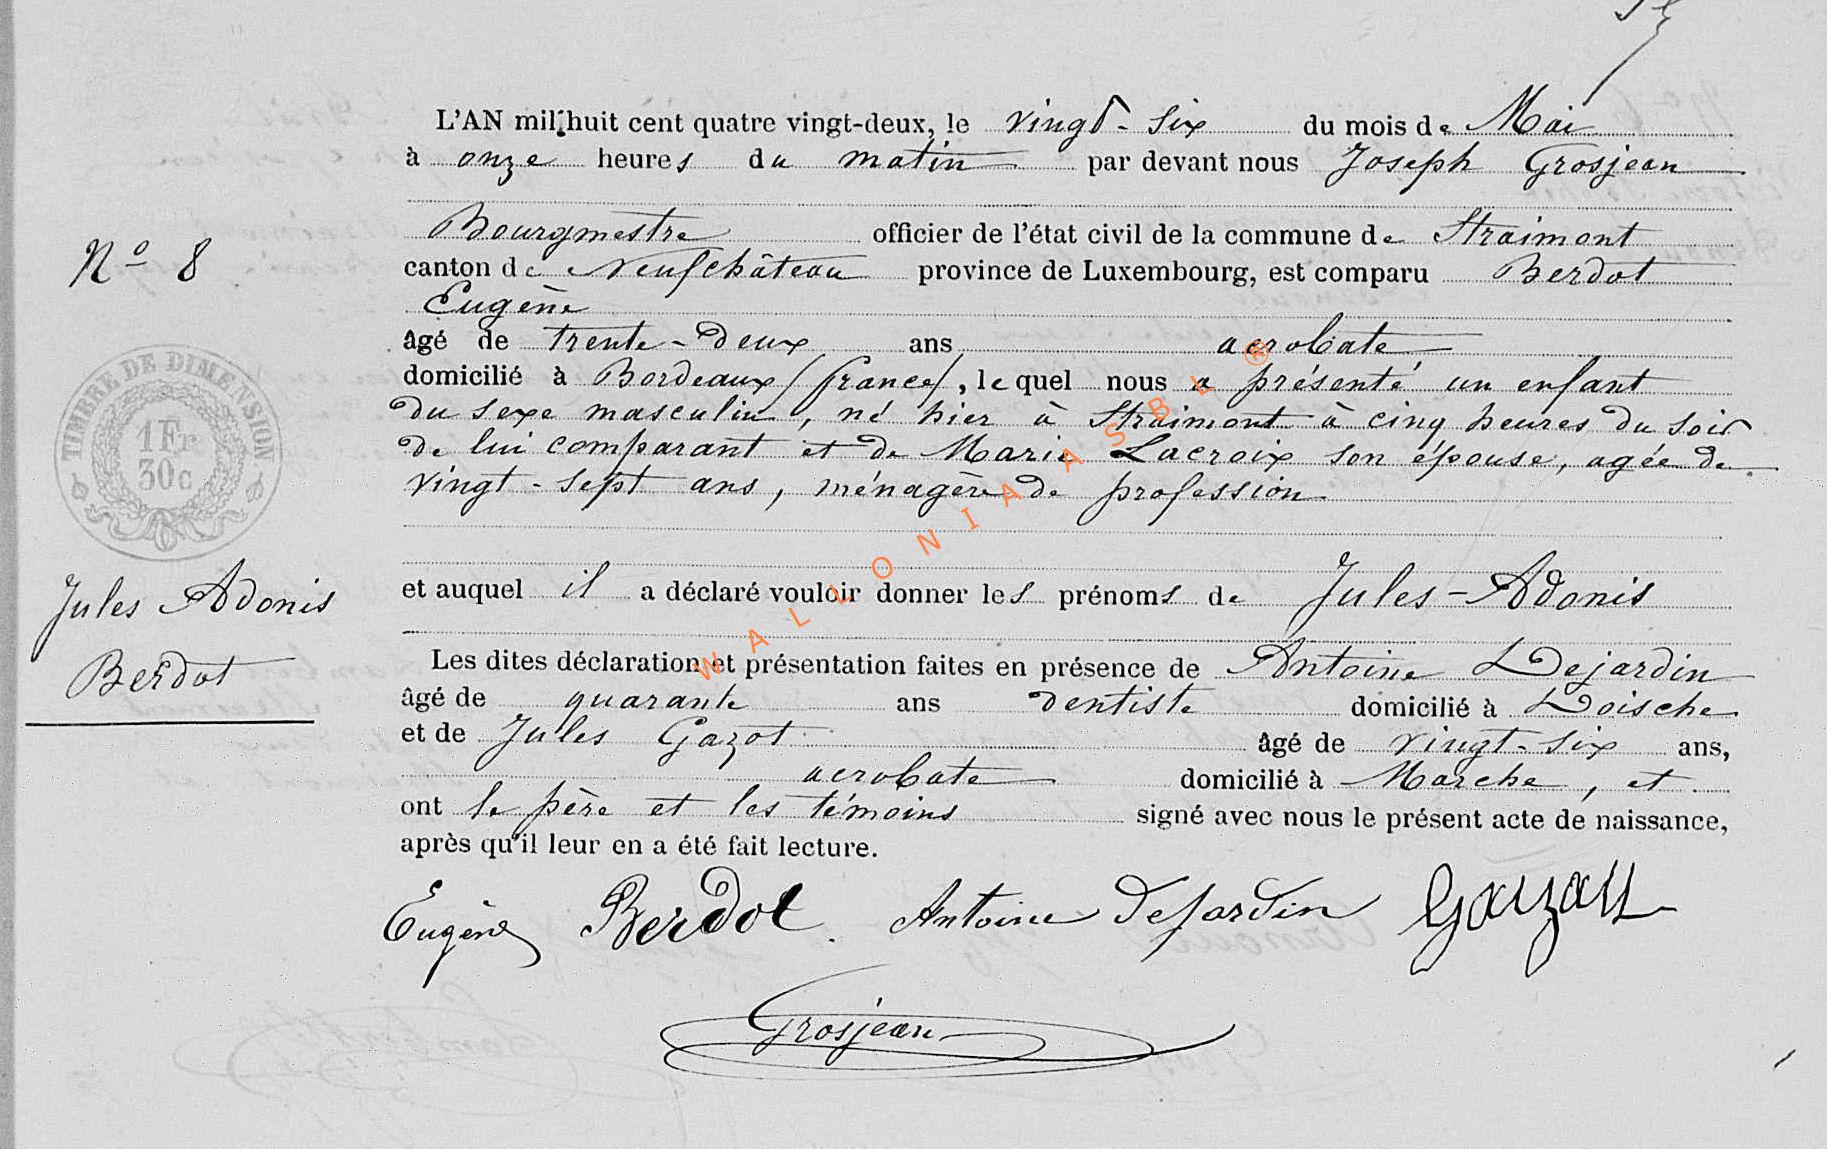 L'AN mil huit cent quatre vingt-deux, le vingt-six du mois de Mai
à onze heures du matin par devant nous Joseph Grosjean
Bourgmestre officier de l'état civil de la commune de Straimont
N° 8
canton de Neufchâteau province de Luxembourg, est comparu Berdot
Eugène
âgé de trente-deux ans acrobate
domicilié à Bordeaux (france), lequel nous a présenté un enfant
du sexe masculin, né hier à Straimont à cinq heures du soir
de lui comparant et de Marie Lacroix son épouse, agée de
vingt-sept ans, ménagère de profession
TIMBRE DE DIMENSION
1 Fr
30c
et auquel il a déclaré vouloir donner les prénoms de Jules-Adonis
Jules Adonis
Berdot
Les dites déclaration et présentation faites en présence de Antoine Dejardin
âgé de quarante ans dentiste domicilié à Doische
et de Jules Gazot âgé de vingt-six ans,
acrobate domicilié à Marche, et
ont le père et les témoins signé avec nous le présent acte de naissance,
après qu'il leur en a été fait lecture.
Eugène Berdot. Antoine Dejardin
Grosjean
WALLONIA ASBL ®